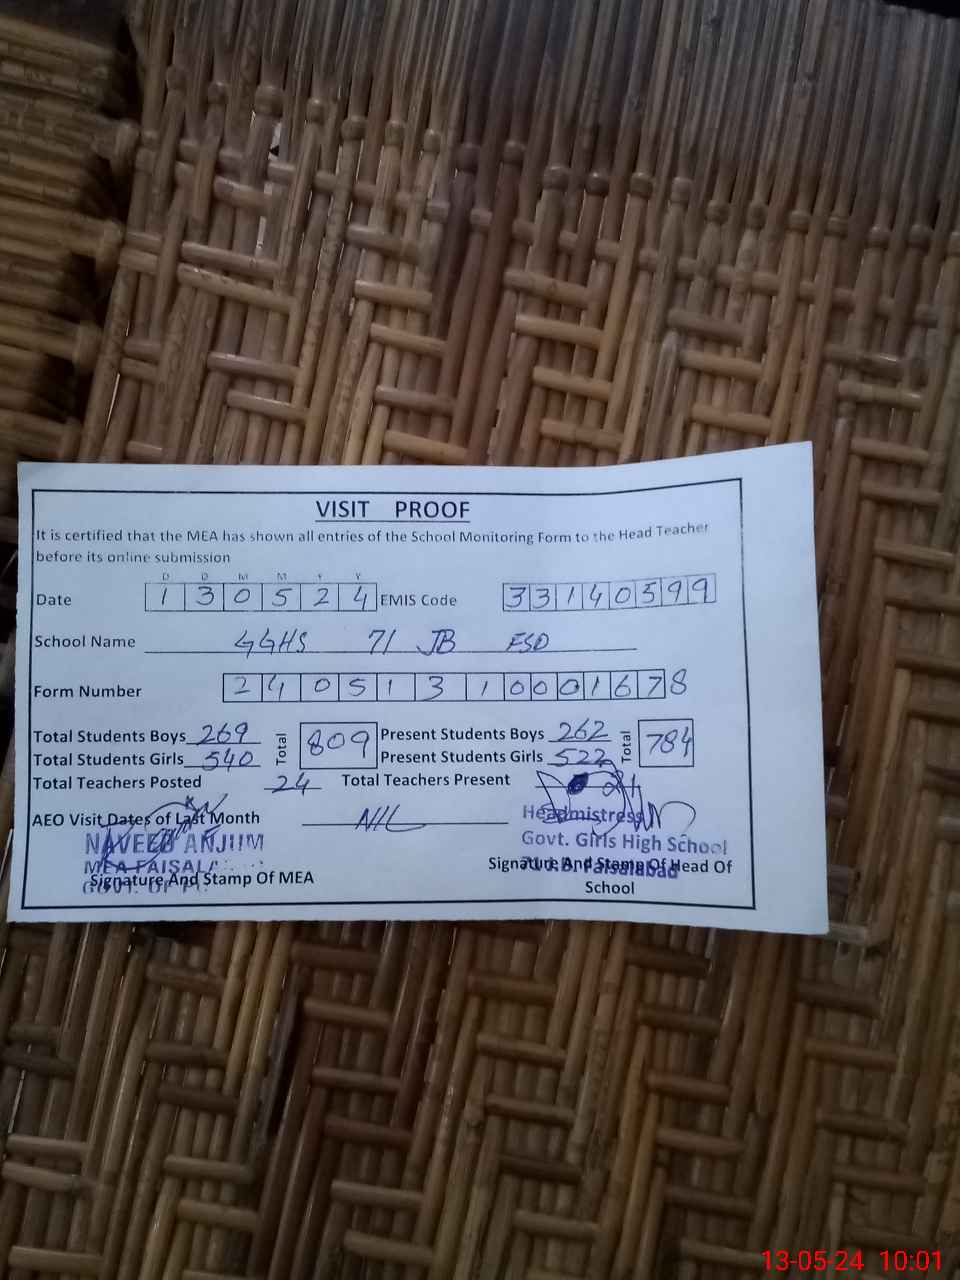 VISIT PROOF
It is certified that the MEA has shown all entries of the School Monitoring Form to the Head Teacher
before its online submission
D D M M Y Y
Date 1 3 0 5 2 4 EMIS Code 3 3 1 4 0 5 9 9
School Name GGHS 71 JB FSD
Form Number 2 4 0 5 1 3 1 0 0 0 1 6 7 8
Total Students Boys 269 Total 809 Present Students Boys 262 Total 784
Total Students Girls 540 Present Students Girls 522
Total Teachers Posted 24 Total Teachers Present
AEO Visit Dates of Last Month NIL
Headmistress
Govt. Girls High School
Faisalabad
NAVEED ANJUM
MEA FAISAL
Signature And Stamp Of MEA
Signature And Stamp Of Head Of
School
13-05-24 10:01